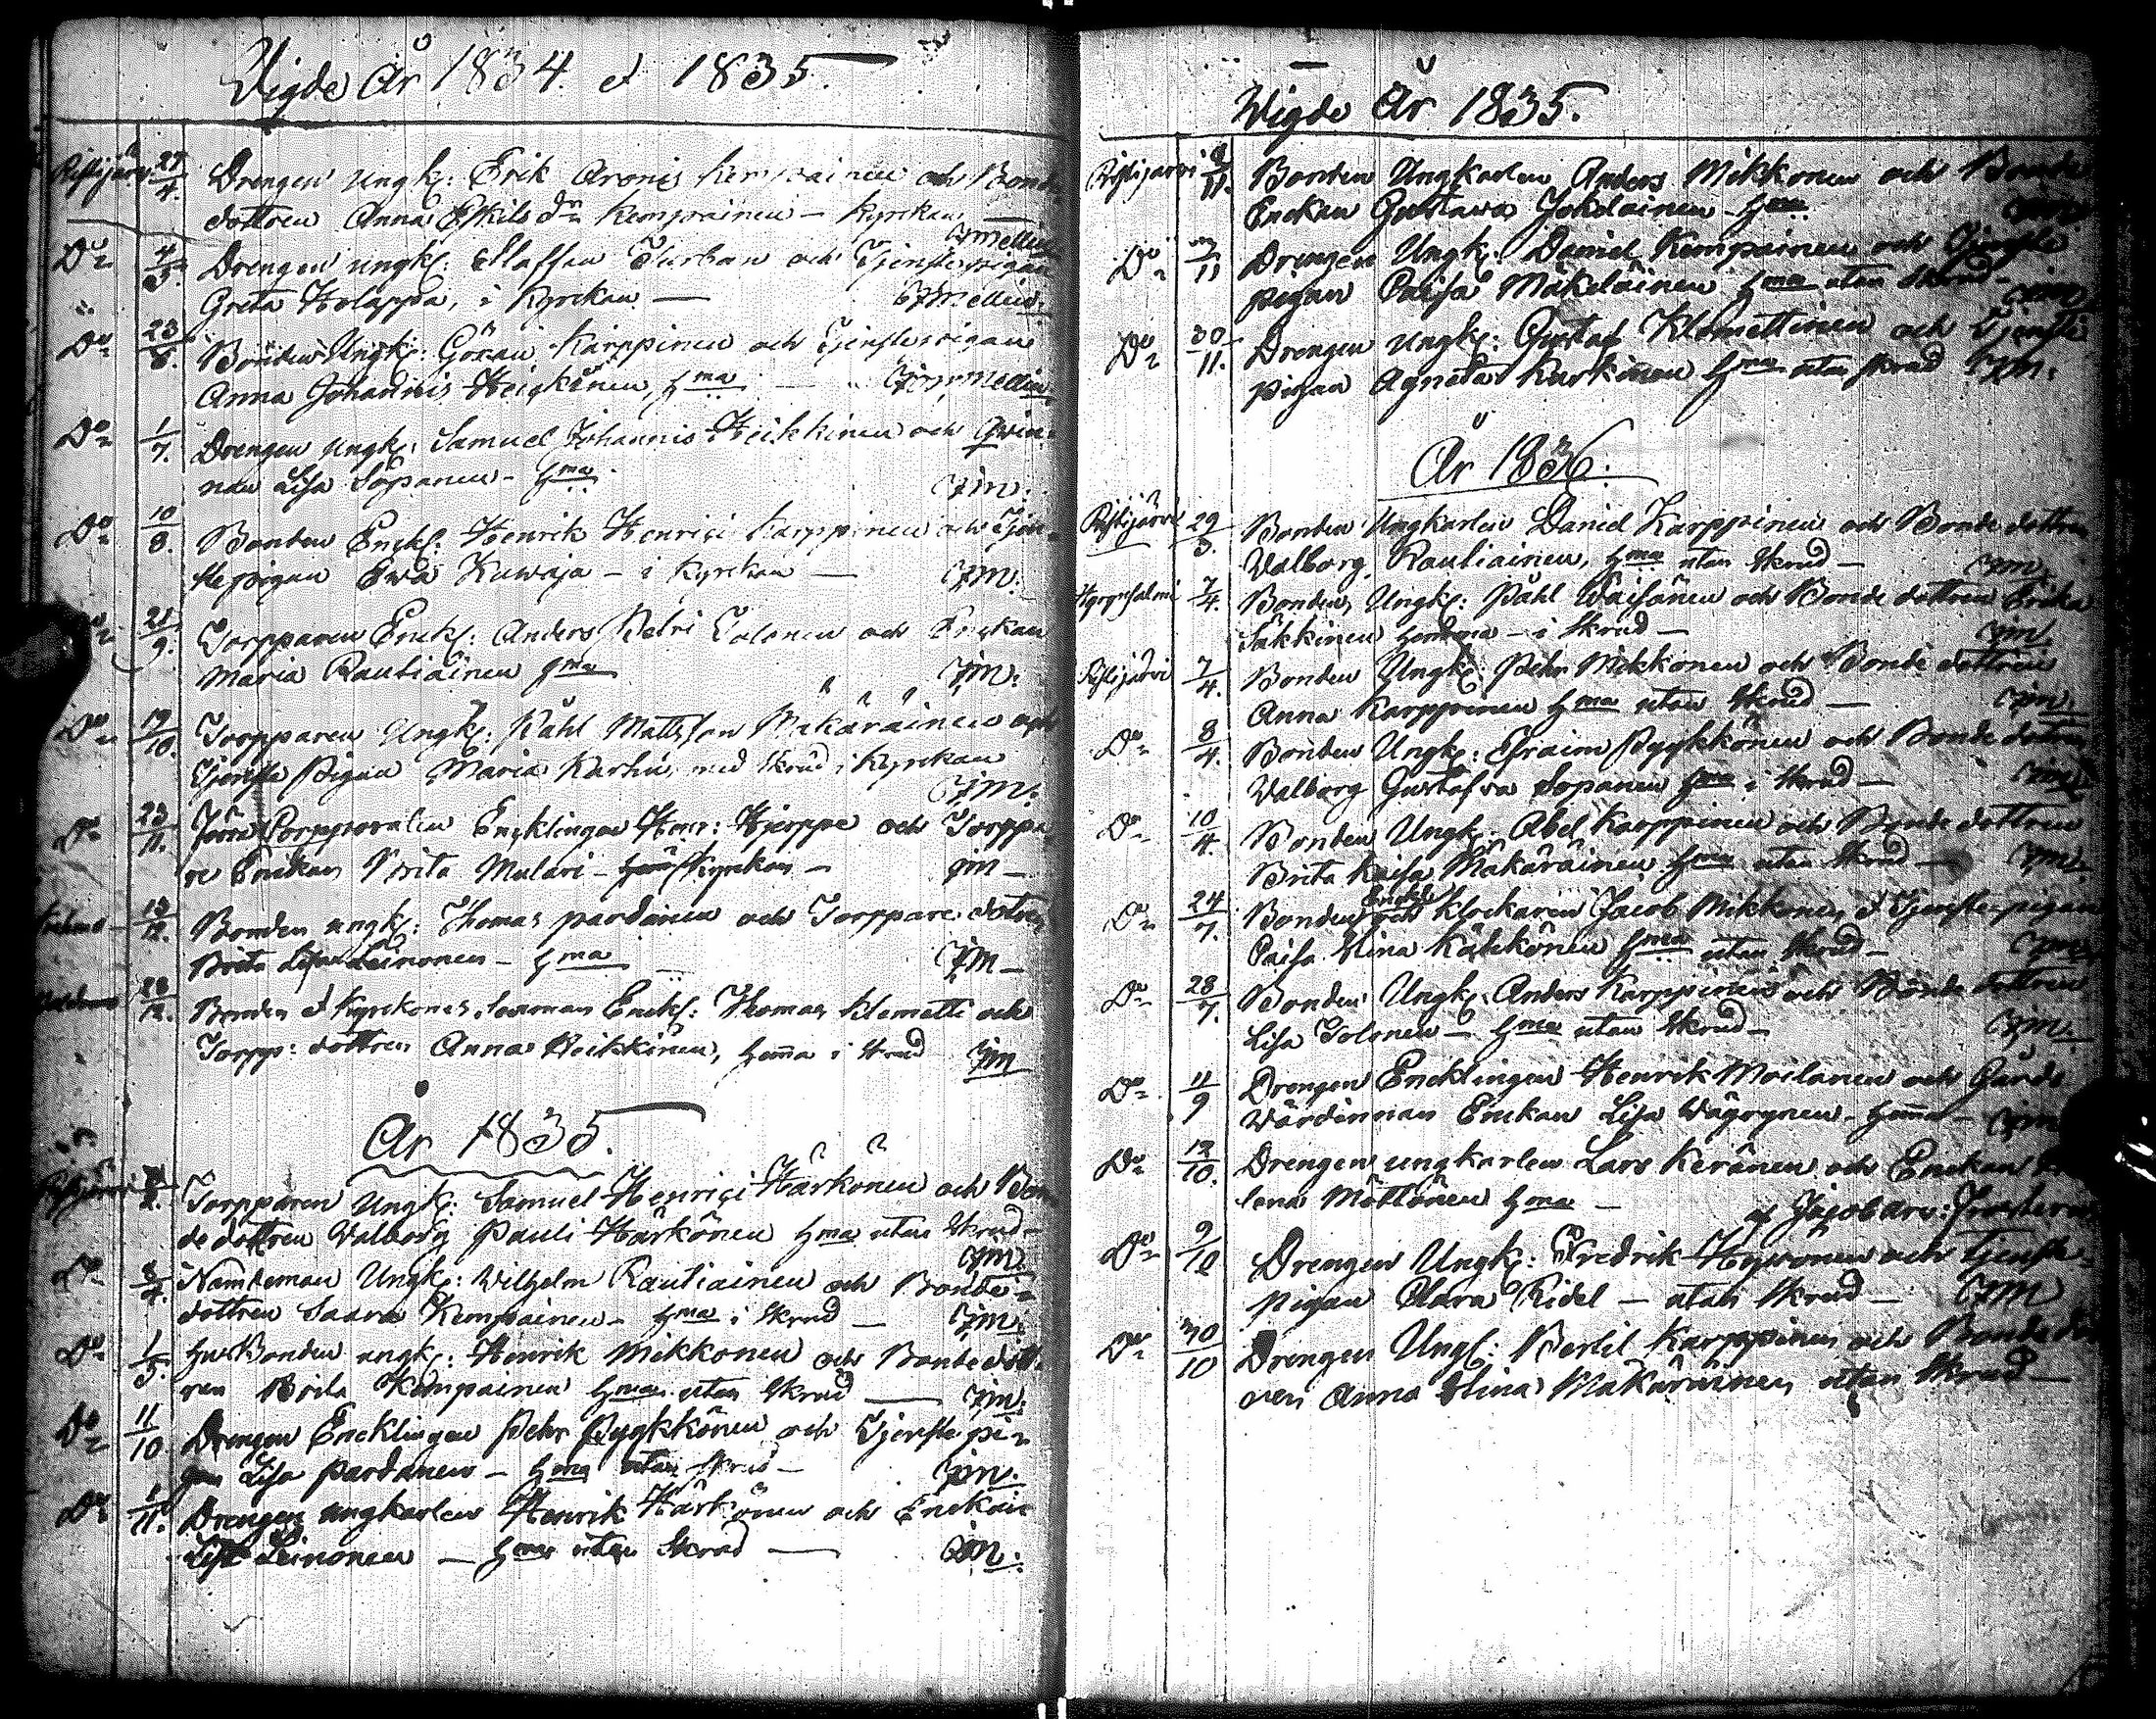 Vigde År 1834. et 1835.
Ristijärvi 27/4. Drengen ungk: Erik Aronis Kempainen och Bonde
dottren Anna Eskils dr Kempainen - Kyrckan
CJMellin
Do 4/5. Drengen ungk: Staffan Turban och Tjenstepigan
Greta Holappa, i Kyrckan — CJMellin.
Do 23/6. Bonden Ungk: Göran Karppinen och Tjenstepigan
Anna Johannis Heickinen, Hma — CJMellin
Do 1/7. Drengen ungk: Samuel Johannis Heikkinen och Qvin-
nan Lisa Sopanen - Hma CJM.
Do 10/8. Bonden Enckl: Henrik Henrici Karppinen och Tjen-
stepigan Ewa Kuwaja - i Kyrckan — CJM.
Do 21/9. Torpparen Enckl: Anders Petri Tolonen och Enckan
Maria Rautiainen Hma CJM.
Do 19/10. Torpparen Ungk: Påhl Mattsson Mäkäräinen och
Tjenste Pigan Maria Karhu, med Skrud i Kyrckan
CJM.
Do 23/11. Corpporalen Encklingen Henr: Hjerppe och Torppa-
re Enckan Brita Mulari - Kyrckan — CJM —
13/12. Bonden ungk: Thomas Pardanen och Torppare dottren
Brita Lisa Leinonen - Hma CJM —
28/12. Bonden et Kyrckones. Enckl: Thomas Klemetti och
Torpp: dottren Anna Heikkinen, Hemma i Skrud CJM
År 1835.
Ristijärvi Torpparen Ungk: Samuel Henrici Härkönen och Bon-
de dottren Walborg Pauli Härkönen Hma utan Skrud -
CJM.
Do Nämdeman Ungk: Wilhelm Rautiainen och Bonde-
dottren Saara Kempainen - Hma i Skrud — CJM.
Do 1/5. Bonden ungk: Henrik Mikkonen och Bonde dott-
ren Brita Kempainen Hma utan Skrud — CJM.
Do 11/10 Drengen Encklingen Pehr Pyykkönen och Tjenste pi-
gan Lisa Pardanen - Hma utan Skrud — CJM.
Do 1/11. Drengen ungkarlen Henrik Härkönen och Enckan
Lisa Leinonen — Hma utan Skrud — CJM.
Wigde År 1835.
Ristijärvi 8/11. Bonden Ungkarlen Anders Mikkonen och Bonde
Enckan Gustawa Jokelainen Hma CJM.
Do /11 Drengen Ungk: Daniel Kempainen och Tjenste
pigan Caisa Mäkeläinen Hma utan Skrud - CJM
Do 30/11. Drengen ungk: Gustaf Klemettinen och Tjenste
pigan Agneta Karkinen Hma utan Skrud CJM.
År 1836.
Ristijärvi 29/3. Bonden Ungkarlen Daniel Karppinen och Bonde dottren
Walborg Rautiainen, Hma utan Skrud — CJM.
Hyrynsalmi 7/4. Bonden Ungk: Påhl Wäisänen och Bonde dottren Erika
Säkkinen Hemma - i Skrud — CJM.
Ristijärvi 7/4. Bonden Ungk: Pehr Mikkonen och Bonde dottren
Anna Karppinen Hma utan Skrud — CJM.
Do 8/4. Bonden Ungk: Efraim Pyykkönen och Bonde dottren
Walborg Gustafva Sopanen Hma i Skrud — CJM.
Do 10/4. Bonden Ungk: Abel Karppinen och Bonde dottren
Brita Kaisa Mäkäräinen Hma utan Skrud — CJM.
Do 24/7. Bonden Enckl och Klockaren Jacob Mikkonen et Tjenste-pigan
Caisa Stina Kähkönen Hma utan Skrud — CJM
Do 28/7. Bonden Ungk: Anders Karppinen och Bonde dottren
Lisa Tolonen — Hma utan Skrud — CJM.
Do 11/9 Drengen Encklingen Henrik Moilanen och Gårds
Wärdinnan Enckan Lisa Wäyrynen - Hemma — CJM
Do 12/10. Drengen ungkarlen Lars Keränen och Enckan
lena Möttönen Hma — af Jacob
Do 9/10 Drengen Ungk: Fredrik Hyvönen och Tjenste-
pigan Clara Ridel — utan Skrud — CJM
Do 30/10 Drengen Ungk: Bertil Karppinen och Bonde dott
ren Anna Stina Mäkäräinen utan Skrud —